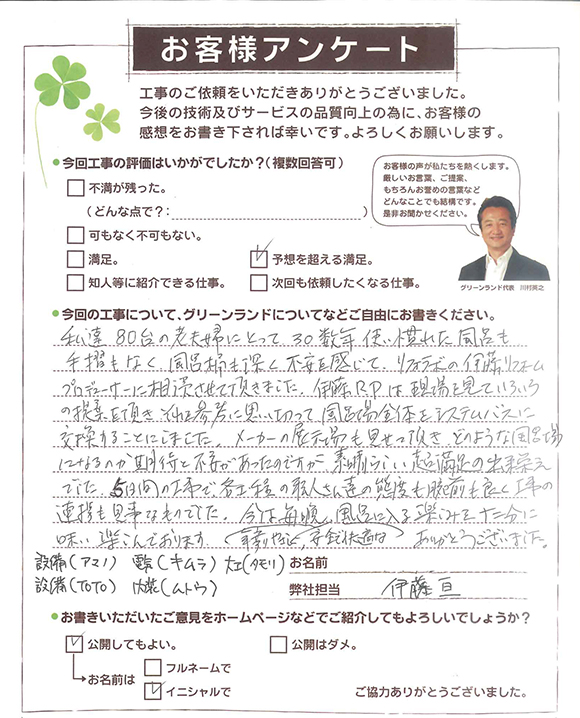 お客様アンケート
工事のご依頼をいただきありがとうございました。
今後の技術及びサービスの品質向上の為に、お客様の
感想をお書き下されば幸いです。よろしくお願いします。
●今回工事の評価はいかがでしたか?(複数回答可)
お客様の声が私たちを熱くします。
厳しいお言葉、ご提案、
もちろんお誉めの言葉など
どんなことでも結構です。
是非お聞かせください。
不満が残った。
(どんな点で?: )
可もなく不可もない。
満足。
予想を超える満足。
知人等に紹介できる仕事。
次回も依頼したくなる仕事。
グリーンランド代表 川村英之
●今回の工事について、グリーンランドについてなどご自由にお書きください。
私達80台の老夫婦にとって、30数年使い慣れた風呂も
手摺もなく風呂桶も深く不安を感じて、リフォラボの伊藤リフォーム
プロデューサーに相談させて頂きました。伊藤RPは現場を見ていろいろ
の提案を頂き、それを参考に思い切って風呂場全体をシステムバスに
交換することにしました。メーカーの展示場も見せて頂き、どのような風呂場
になるのか期待と不安があったのですが素晴らしい超満足の出来栄え
でした。5日間の工事で各工種の職人さん達の態度も腕前も良く工事の
連携も見事なものでした。今は毎晩、風呂に入る楽しみを十二分に
味い楽しんでおります。 ありがとうございました。
設備(アマノ) 電気(キムラ) 大工(タモリ)
お名前
設備(TOTO) 内装(ムトウ)
弊社担当 伊藤 亘
●お書きいただいたご意見をホームページなどでご紹介してもよろしいでしょうか?
公開してもよい。
公開はダメ。
お名前は
フルネームで
イニシャルで
ご協力ありがとうございました。